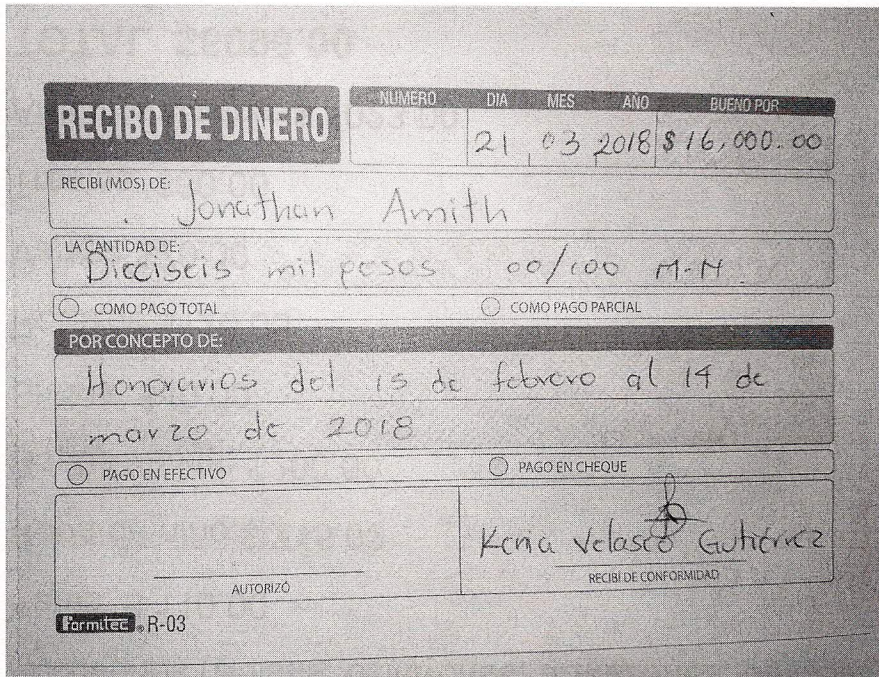 RECIBO DE DINERO
NUMERO DIA MES AÑO BUENO POR
21 03 2018 $16,000.00
RECIBI (MOS) DE:
Jonathan Amith
LA CANTIDAD DE:
Dieciseis mil pesos 00/100 M.N
COMO PAGO TOTAL COMO PAGO PARCIAL
POR CONCEPTO DE:
Honorarios del 15 de febrero al 14 de
marzo de 2018
PAGO EN EFECTIVO PAGO EN CHEQUE
Kenia Velasco Gutiérrez
AUTORIZÓ RECIBI DE CONFORMIDAD
Formitec ® R-03